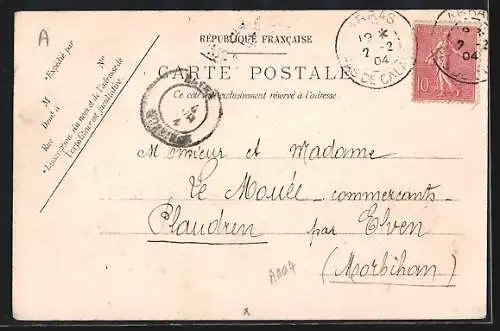 A
RÉPUBLIQUE FRANÇAISE
CARTE POSTALE
Ce côté est exclusivement réservé à l'adresse.
Expédié par
M
Dem.t à
Rue
N.o
Inscription du nom et de l'adresse de
l'expéditeur est facultative
ARRAS
19 *
2 -2
04
PAS DE CALAIS
ARRAS
2 -2
04
10
Monsieur et Madame
Le Mouée commercants
Plaudren par Elven
(Morbihan)
A104
x